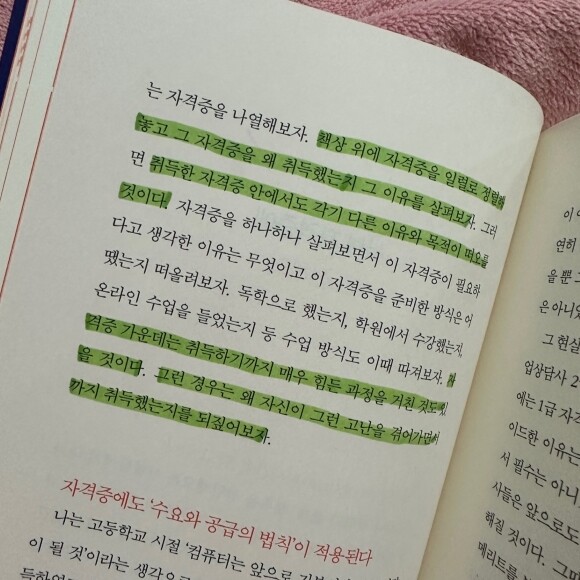 는 자격증을 나열해보자. 책상 위에 자격증을 일렬로 정렬해
놓고 그 자격증을 왜 취득했는지 그 이유를 살펴보자. 그러
면 취득한 자격증 안에서도 각기 다른 이유와 목적이 떠오를
것이다. 자격증을 하나하나 살펴보면서 이 자격증이 필요하
다고 생각한 이유는 무엇이고 이 자격증을 준비한 방식은 어
땠는지 떠올려보자. 독학으로 했는지, 학원에서 수강했는지,
온라인 수업을 들었는지 등 수업 방식도 이때 따져보자. 자
격증 가운데는 취득하기까지 매우 힘든 과정을 거친 것도 있
을 것이다. 그런 경우는 왜 자신이 그런 고난을 겪어가면서
까지 취득했는지를 되짚어보자.
자격증에도 '수요와 공급의 법칙'이 적용된다
나는 고등학교 시절 '컴퓨터는 앞으로
이 될 것'이라는 생각으로
연히
을 뿐
은 아니
그 현실
업상담사 2
에는 1급 자격
이드한 이유는
서 필수는 아니
사들은 앞으로도
해질 것이다. 그
메리트를